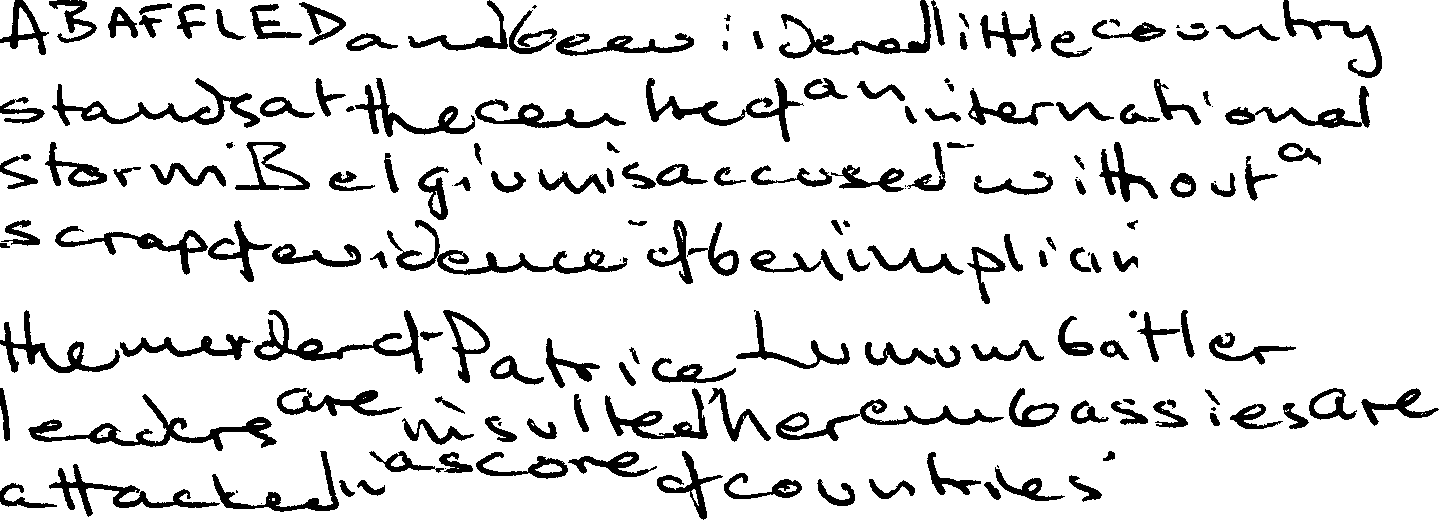 A BAFFLED and bewildered little country
stands at the centre of an international
storm. Belgium is accused without a
scrap of evidence of being impli in
the murder of Patrice Lumumba Her
leaders are insulted her embassies are
attacked in a score of countries.